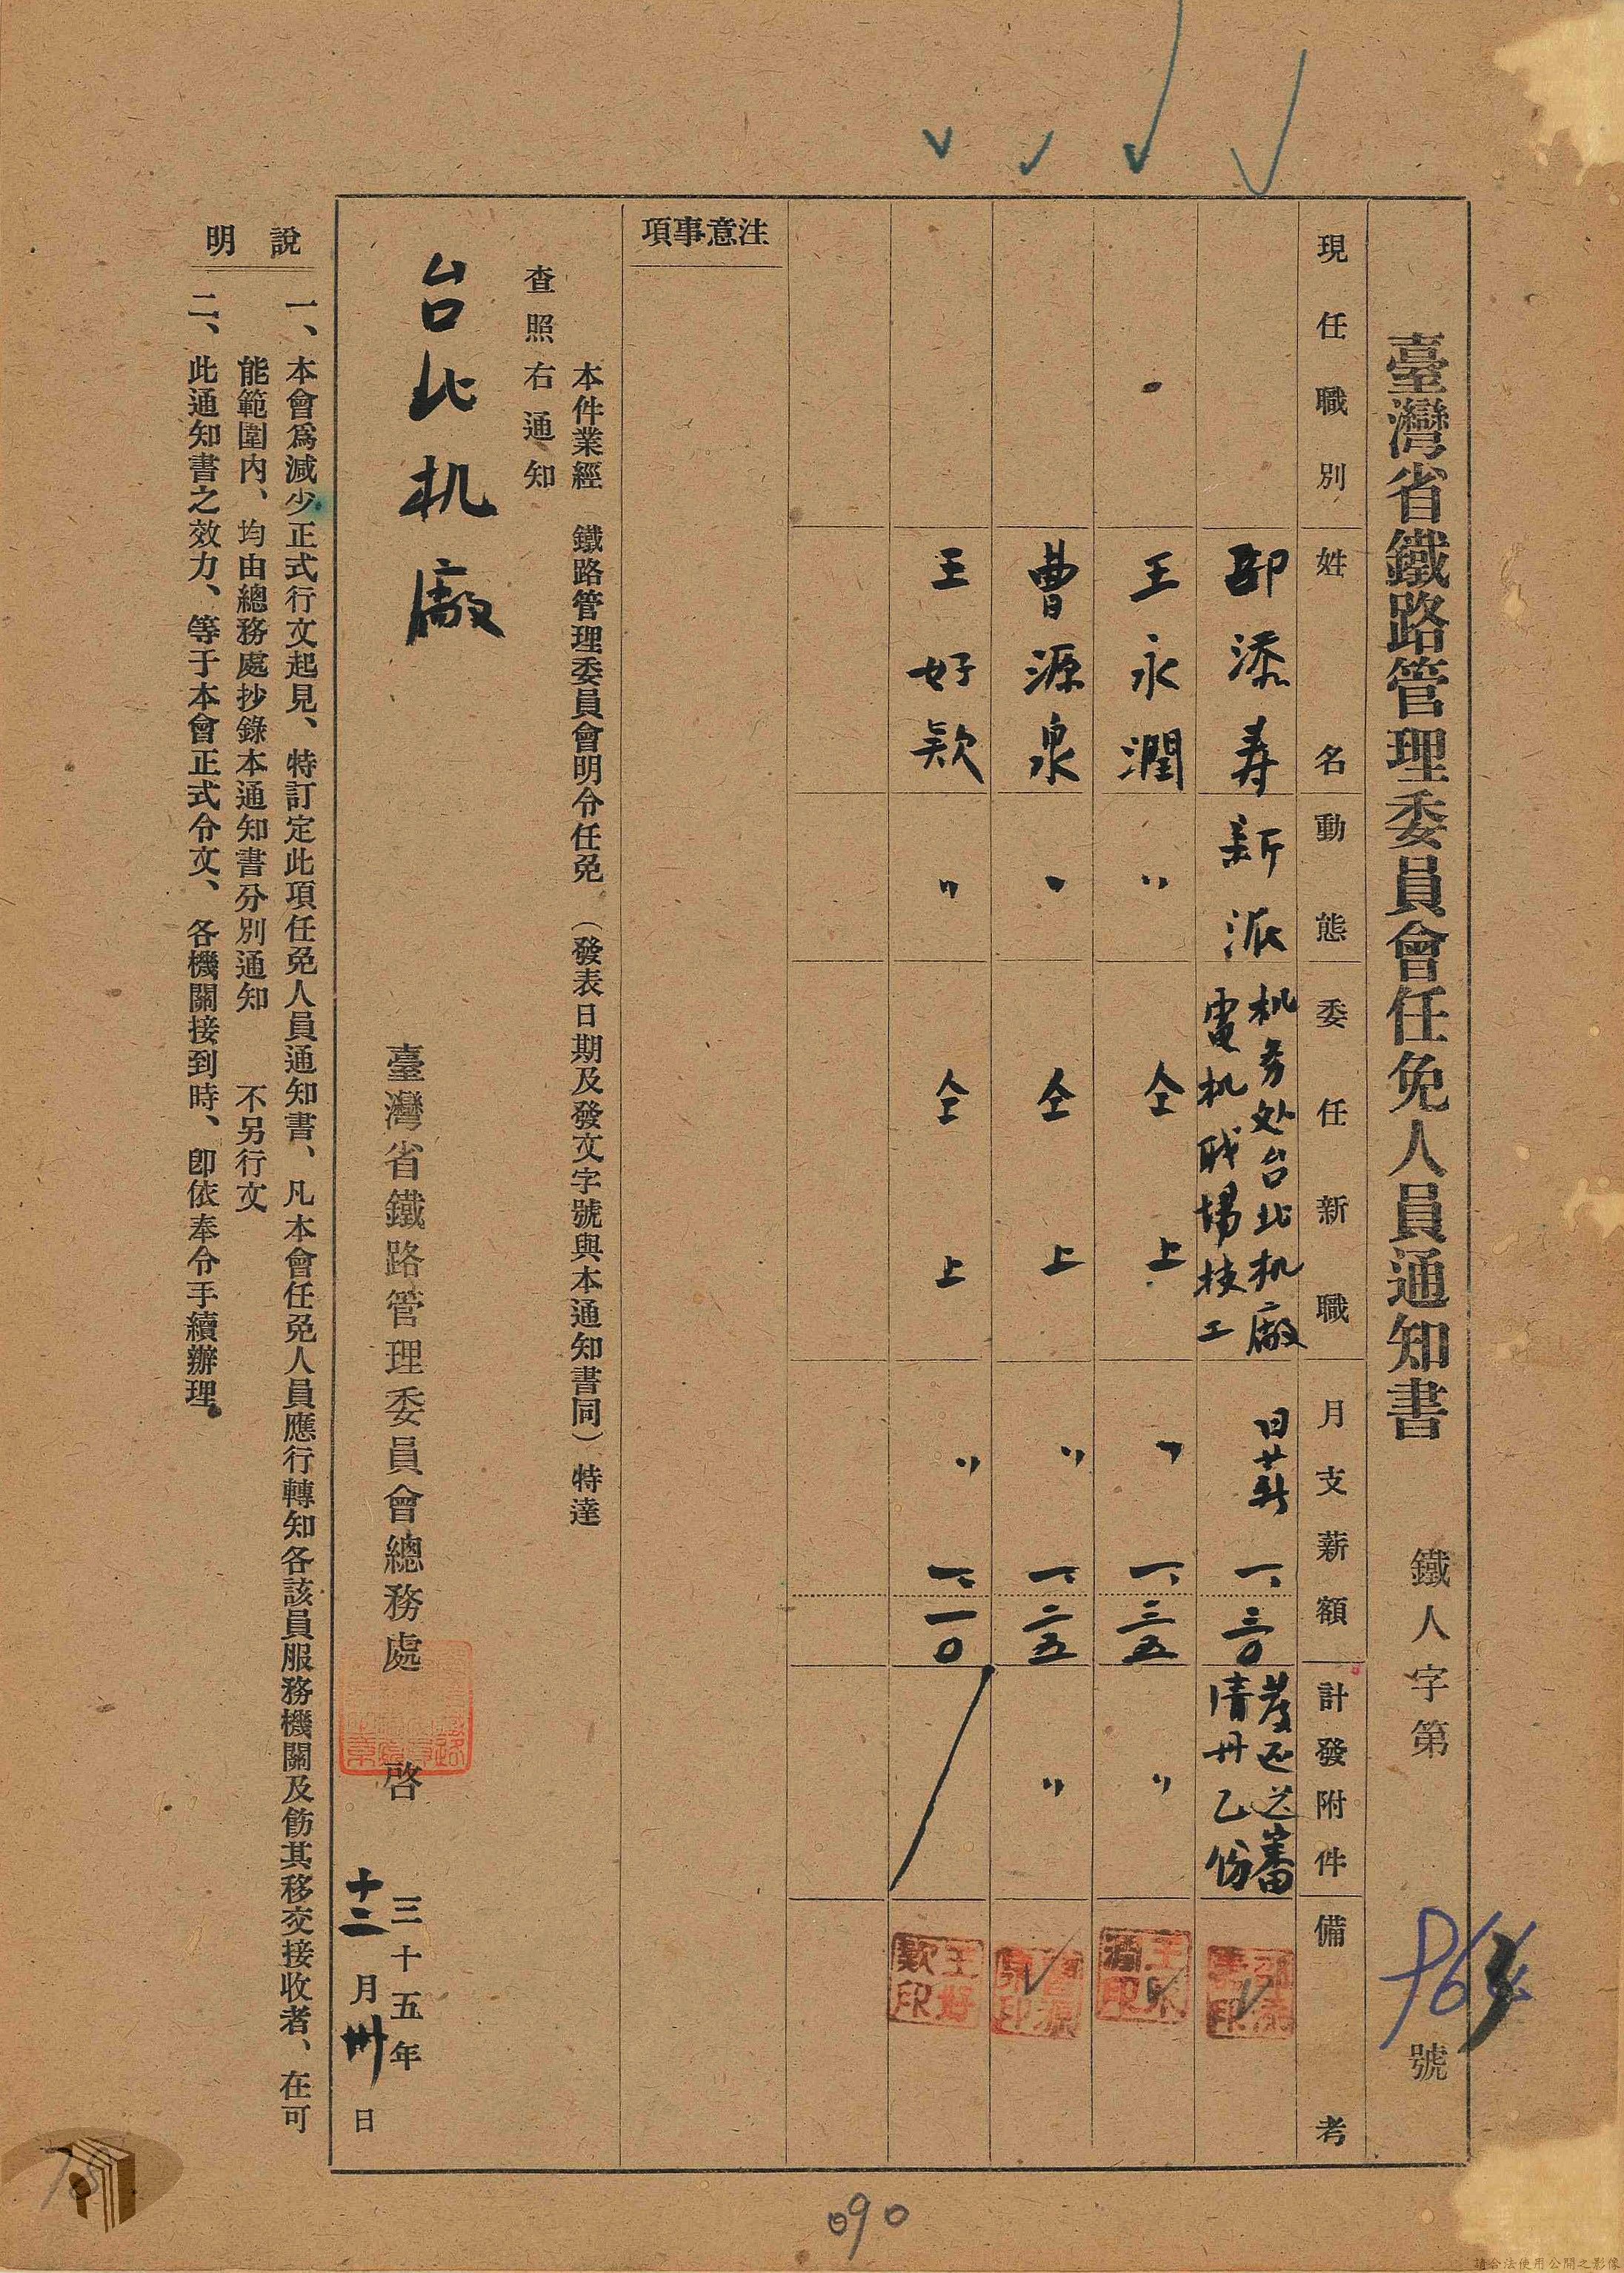 臺灣省鐵路管理委員會任免人員通知書
鐵人字第
號
現任職別
姓名
動態
委任新職
月支薪額
計發附件
備考
邵添寿
新派
机务处台北机廠
電机職場技工
日薪
一、三〇
發还送審
清冊乙份
王永潤
〃
仝上
〃
一、三五
〃
王永潤印
曹源泉
〃
仝上
〃
一、二五
〃
曹源泉印
王好欵
〃
仝上
〃
一、一〇
王好欵印
注意事項
本件業經 鐵路管理委員會明令任免 (發表日期及發文字號與本通知書同) 特達
查照右通知
台北机廠
臺灣省鐵路管理委員會總務處 啓
三十五年
十二月卅日
說明
一、本會爲減少正式行文起見、特訂定此項任免人員通知書、凡本會任免人員應行轉知各該員服務機關及飭其移交接收者、在可
能範圍內、均由總務處抄錄本通知書分別通知 不另行文
二、此通知書之效力、等于本會正式令文、各機關接到時、卽依奉令手續辦理
090
請合法使用公開之影像